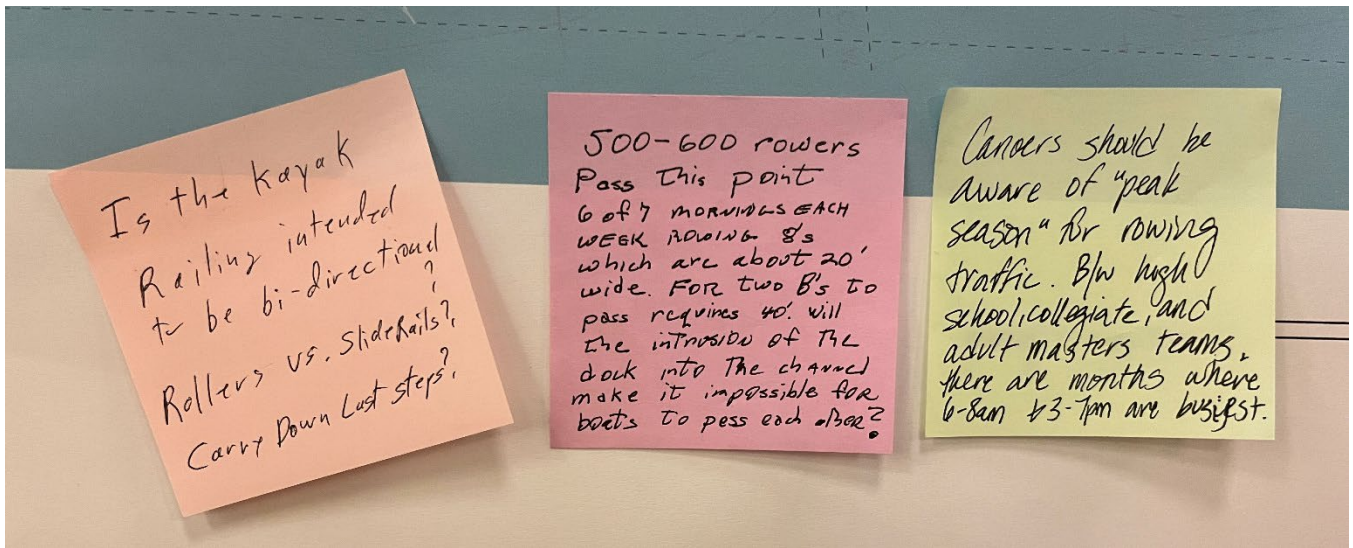 Is the kayak
Railing intended
to be bi-directional?
Rollers vs. Slide Rails?,
Carry Down Last steps?,
500-600 rowers
Pass This point
6 of 7 MORNINGS EACH
WEEK ROWING 8's
which are about 20'
wide. FOR two 8's to
pass requires 40'. will
the intrusion of The
dock into The channel
make it impossible for
boats to pass each other?
Canoers should be
aware of "peak
season" for rowing
traffic. B/w high
school, collegiate, and
adult masters teams,
there are months where
6-8am & 3-7pm are busiest.